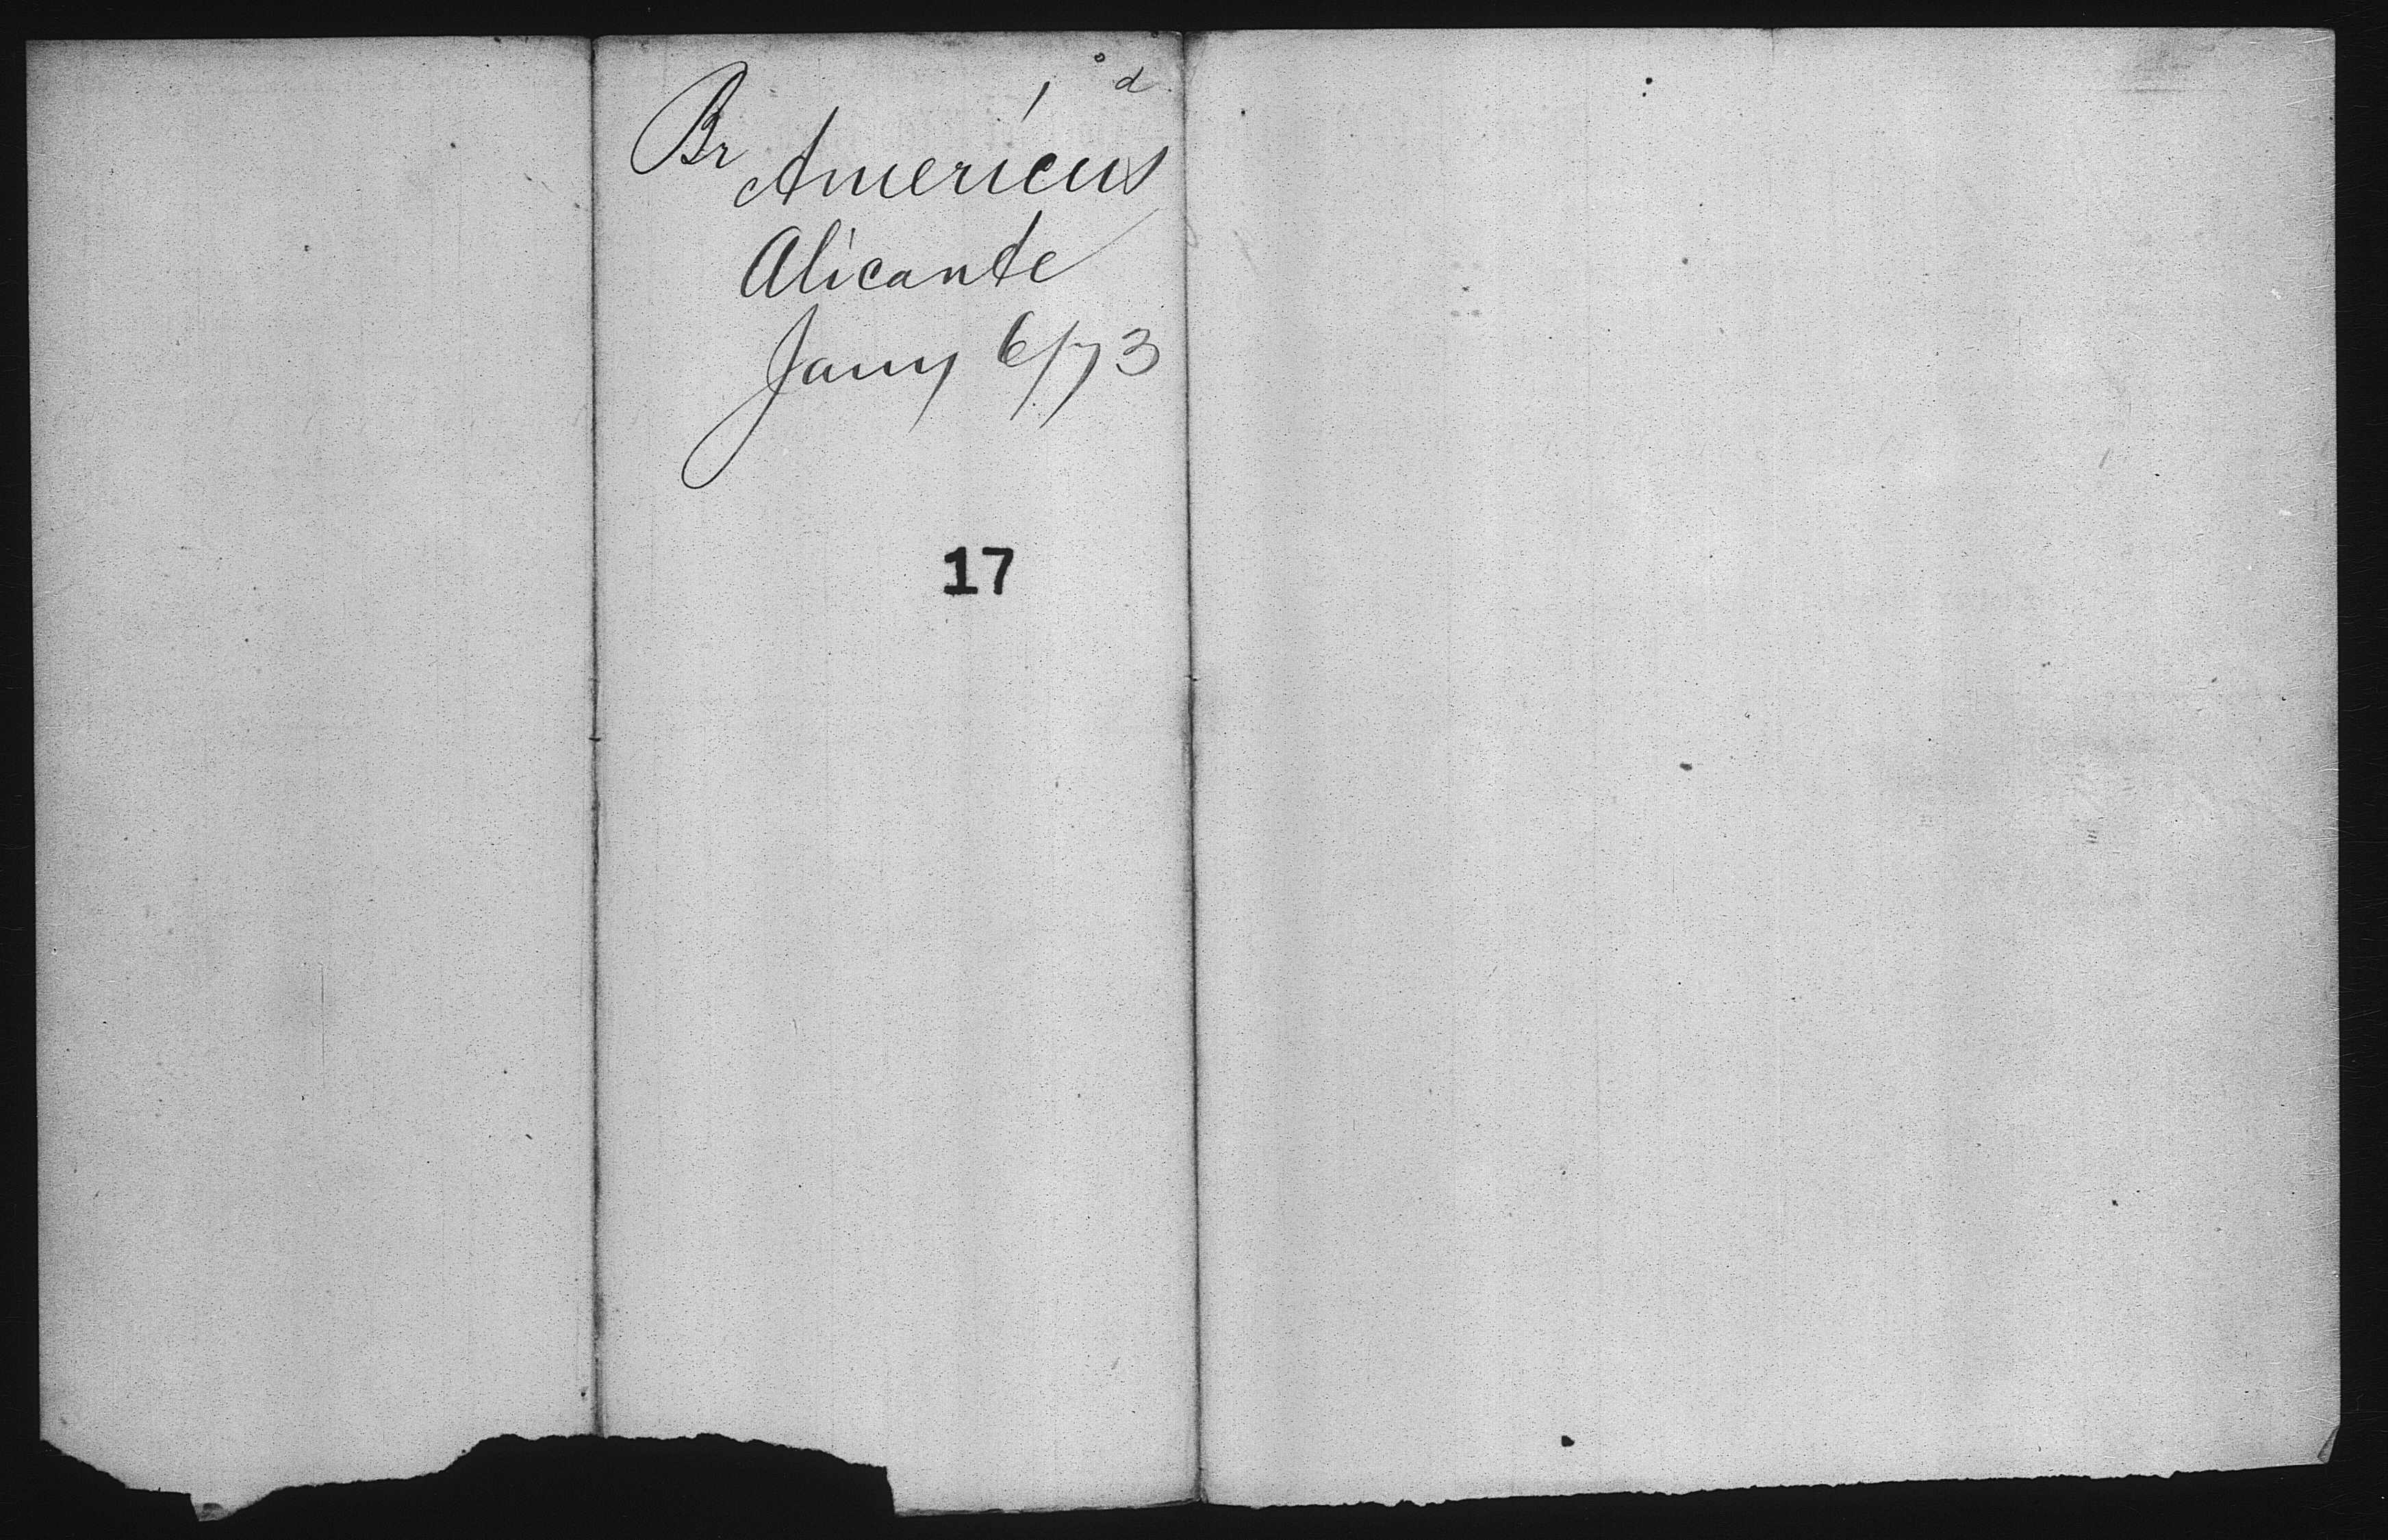 d
Br Americus
Alicante
Jany 6/73
17